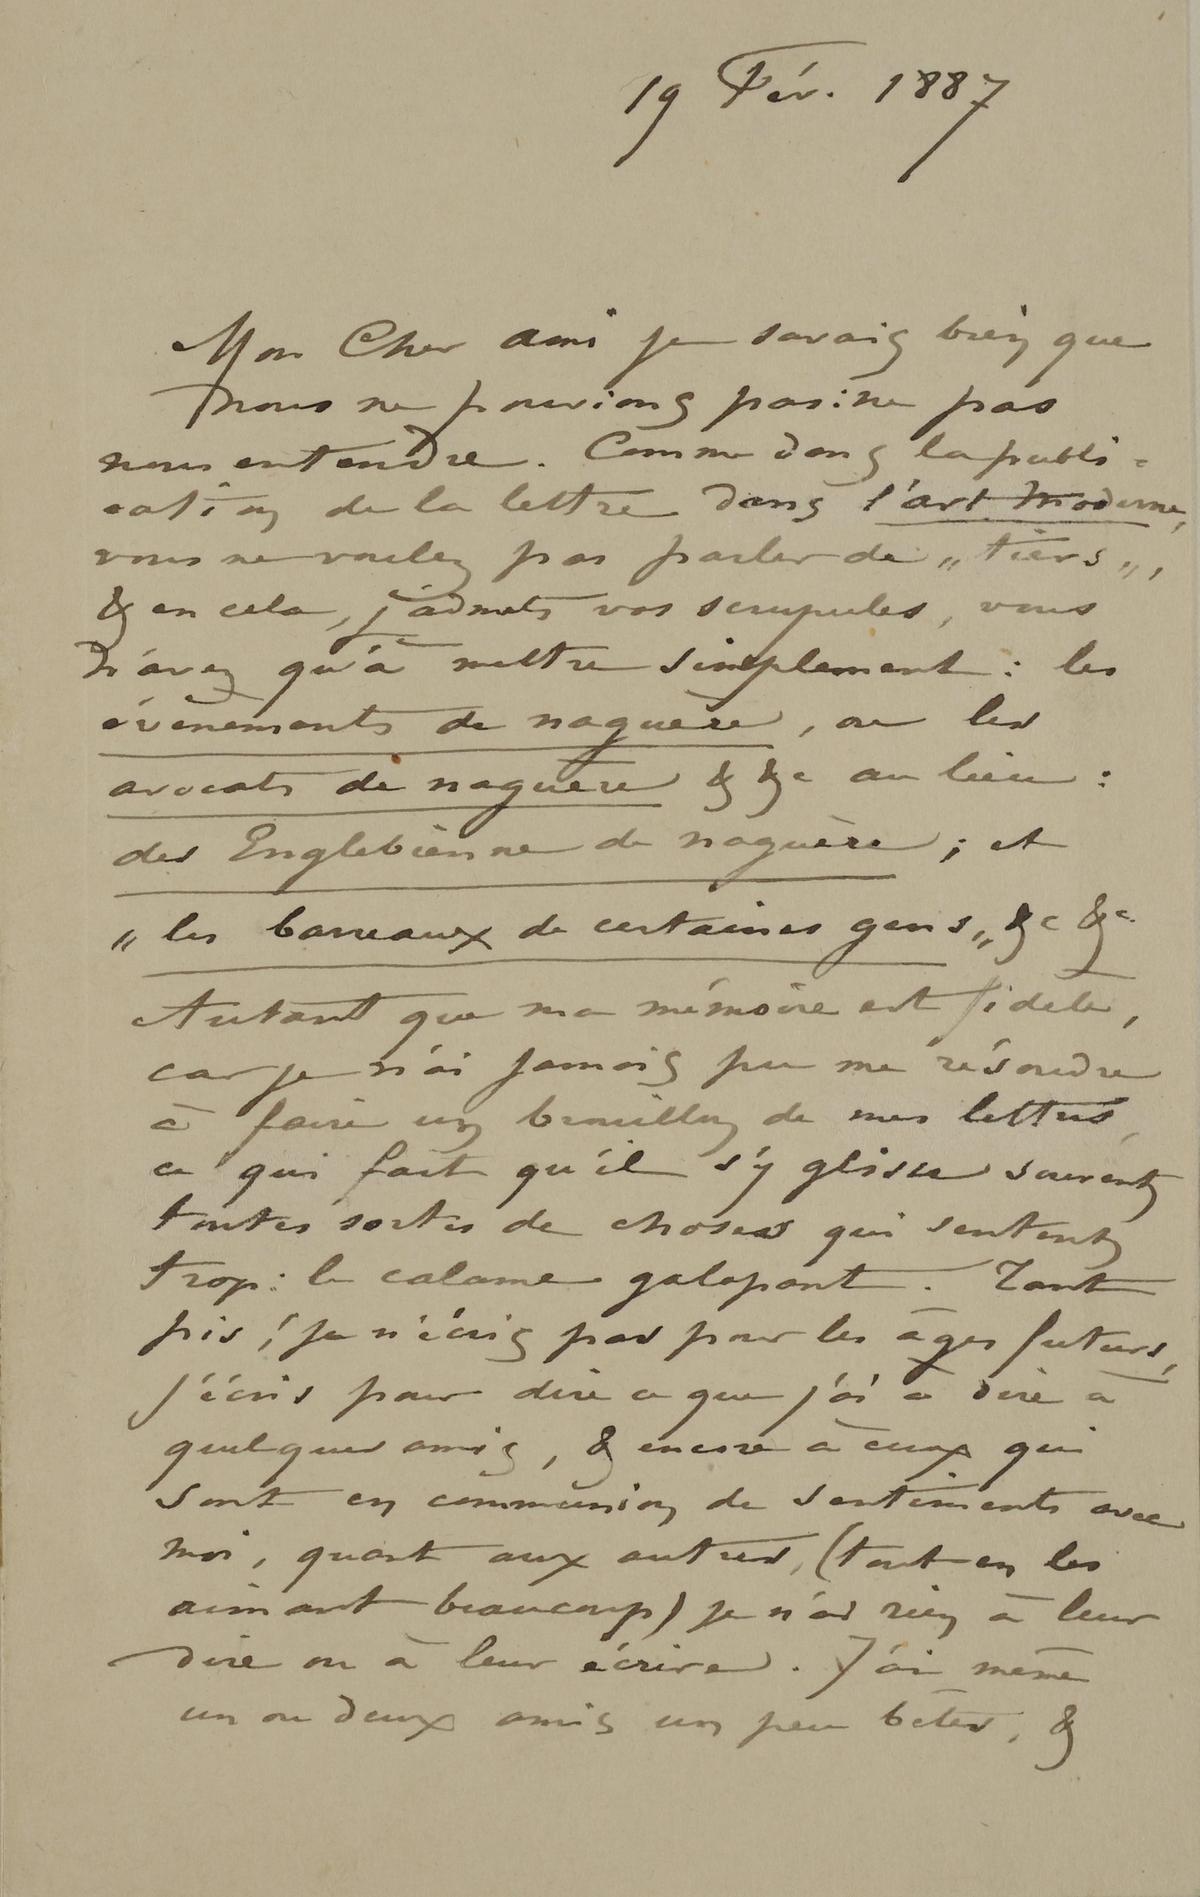 19 Fév. 1887
Mon Cher ami je savais bien que
nous ne pouvions pas ne pas
nous entendre. Comme dans la publi=
cation de la lettre dans l'art Moderne,
vous ne voulez pas parler de „tiers„,
& en cela, j'admets vos scrupules, vous
n'avez qu'à mettre simplement: les
évènements de naguère, ou les
avocats de naguère & &c au lieu:
des Englebienne de naguère; et
„les barreaux de certaines gens„ &c &c
Autant que ma mémoire est fidele,
car je n'ai jamais pu me résoudre
à faire un brouillon de mes lettres,
ce qui fait qu'il s'y glisse souvent
toutes sortes de choses qui sentent
trop: le calame galopant. Tant
pis! je n'écris pas pour les âges futurs,
j'écris pour dire ce que j'ai à dire à
quelques amis, & encore à ceux qui
sont en communion de sentiments avec
moi, quant aux autres, (tout en les
aimant beaucoup) je n'ai rien à leur
dire ou à leur écrire. J'ai même
un ou deux amis un peu bêtes, &